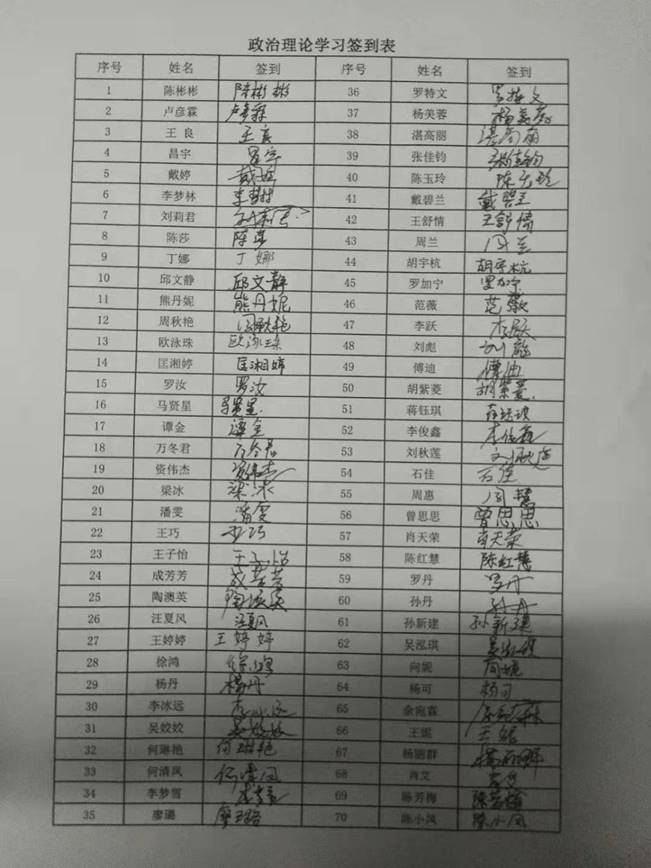 政治理论学习签到表
序号 姓名 签到 序号 姓名 签到
1 陈彬彬 陈彬彬 36 罗特文 罗特文
2 卢彦霖 卢彦霖 37 杨美蓉 杨美蓉
3 王良 王良 38 湛高丽 湛高丽
4 昌宇 昌宇 39 张佳钧 张佳钧
5 戴婷 戴婷 40 陈玉玲 陈玉玲
6 李梦林 李梦林 41 戴碧兰 戴碧兰
7 刘莉君 刘莉君 42 王舒情 王舒情
8 陈莎 陈莎 43 周兰 周兰
9 丁娜 丁娜 44 胡宇杭 胡宇杭
10 邱文静 邱文静 45 罗加宁 罗加宁
11 熊丹妮 熊丹妮 46 范薇 范薇
12 周秋艳 周秋艳 47 李跃 李跃
13 欧泳珠 欧泳珠 48 刘彪 刘彪
14 匡湘婷 匡湘婷 49 傅迪 傅迪
15 罗汝 罗汝 50 胡紫菱 胡紫菱
16 马贤星 马贤星 51 蒋钰琪 蒋钰琪
17 谭金 谭金 52 李俊鑫 李俊鑫
18 万冬君 万冬君 53 刘秋莲 刘秋莲
19 资伟杰 资伟杰 54 石佳 石佳
20 梁冰 梁冰 55 周惠 周慧
21 潘雯 潘雯 56 曾思思 曾思思
22 王巧 王巧 57 肖天荣 肖天荣
23 王子怡 王子怡 58 陈红慧 陈红慧
24 成芳芳 成芳芳 59 罗丹 罗丹
25 陶澳英 陶澳英 60 孙丹 孙丹
26 汪夏风 汪夏风 61 孙新建 孙新建
27 王婷婷 王婷婷 62 吴泓琪 吴泓琪
28 徐鸿 徐鸿 63 向妮 向妮
29 杨丹 杨丹 64 杨可 杨可
30 李冰远 李冰远 65 余宛霖
31 吴姣姣 吴姣姣 66 王妮 王妮
32 何琳艳 何琳艳 67 杨丽群
33 何清凤 何清凤 68 肖文 肖文
34 李梦雪 69 陈芳梅
35 廖璐 廖璐 70 陈小凤 陈小凤